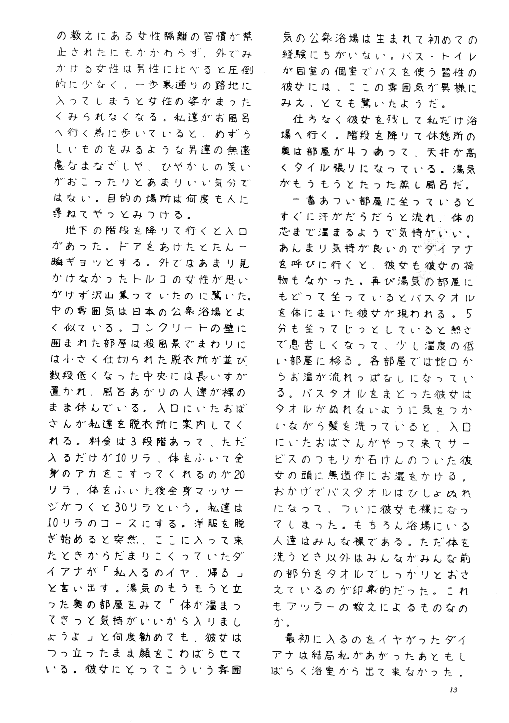 の教えにある女性隔離の習慣が禁
止されたにもかかわらず、外でみ
かける女性は男性に比べると圧倒
的に少なく、一歩裏通りの路地に
入ってしまうと女性の姿がまった
くみられなくなる。私達がお風呂
へ行く為に歩いていると、めずら
しいものをみるような男達の無遠
慮なまなざしや、ひやかしの笑い
がおこったりとあまりいい気分で
はない。目的の場所は何度も人に
尋ねてやっとみつける。
地下の階段を降りて行くと入口
があった。ドアをあけたとたん一
瞬ギョッとする。外ではあまり見
かけなかったトルコの女性が思い
がけず沢山集っていたのに驚いた。
中の雰囲気は日本の公衆浴場とよ
く似ている。コンクリートの壁に
囲まれた部屋は殺風景でまわりに
は小さく仕切られた脱衣所が並び
数段低くなった中央には長いすが
置かれ、風呂あがりの人達が裸の
まま休んでいる。入口にいたおば
さんが私達を脱衣所に案内してく
れる。料金は3段階あって、ただ
入るだけが10リラ、体をふいて全
身のアカをこすってくれるのが20
リラ、体をふいた後全身マッサー
ジがつくと30リラという。私達は
10リラのコースにする。洋服を脱
ぎ始めると突然、ここに入って来
たときからだまりこくっていたダ
イアナが「私入るのイヤ、帰る」
と言い出す。湯気のもうもうと立
った奥の部屋をみて「体が温まっ
てきっと気持がいいから入りまし
ょうよ」と何度勧めても、彼女は
つっ立ったまま顔をこわばらせて
いる。彼女にとってこういう雰囲
気の公衆浴場は生まれて初めての
経験にちがいない。バス・トイレ
が同室の個室でバスを使う習性の
彼女には、ここの雰囲気が異様に
みえ、とても驚いたようだ。
仕方なく彼女を残して私だけ浴
場へ行く。階段を降りて休憩所の
奥は部屋が4つあって、天井が高
くタイル張りになっている。湯気
がもうもうとたった蒸し風呂だ。
一番あつい部屋に坐っていると
すぐに汗がだらだらと流れ、体の
芯まで温まるようで気持がいい。
あんまり気持が良いのでダイアナ
を呼びに行くと、彼女も彼女の荷
物もなかった。再び湯気の部屋に
もどって坐っているとバスタオル
を体にまいた彼女が現われる。5
分も坐ってじっとしていると熱さ
で息苦しくなって、少し温度の低
い部屋に移る。各部屋では蛇口か
らお湯が流れっぱなしになってい
る。バスタオルをまとった彼女は
タオルがぬれないように気をつか
いながら髪を洗っていると、入口
にいたおばさんがやって来てサー
ビスのつもりか石けんのついた彼
女の頭に無造作にお湯をかける。
おかげでバスタオルはびしょぬれ
になって、ついに彼女も裸になっ
てしまった。もちろん浴場にいる
人達はみんな裸である。ただ体を
洗うとき以外はみんながみんな前
の部分をタオルでしっかりとおさ
えているのが印象的だった。これ
もアッラーの教えによるものなの
か。
最初に入るのをイヤがったダイ
アナは結局私があがったあともし
ばらく浴室から出て来なかった。
13